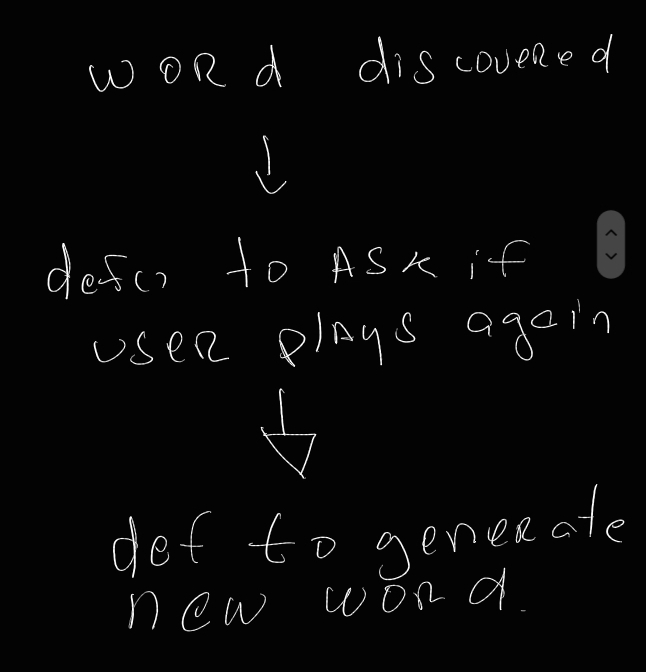 word discovered
def() to ASK if
user plays again
def to generate
new word.